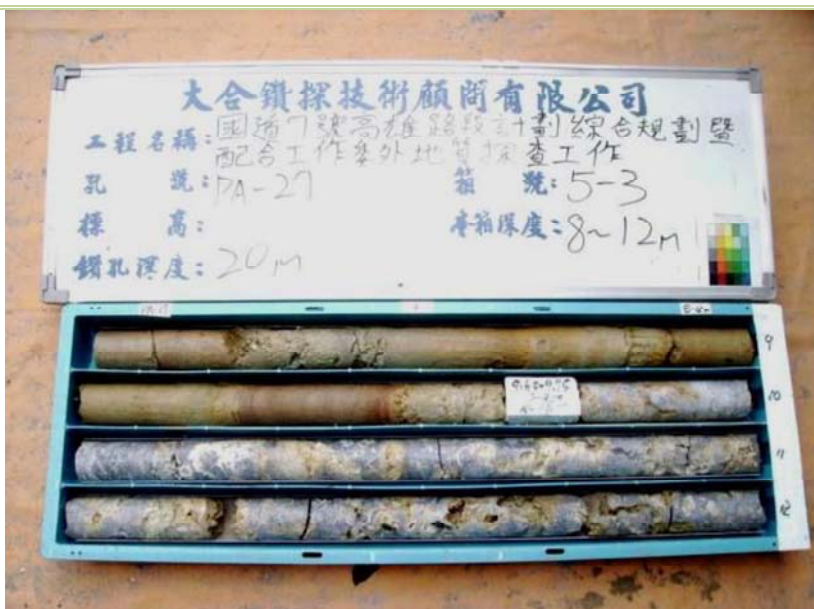 大合鑽探技術顧問有限公司
工程名稱:國道7號高雄路段計劃綜合規劃暨
配合工作案外地質探查工作
孔 號:PA-27 箱 號:5-3
標 高: 本箱深度:8~12m
鑽孔深度:20m
9
10
11
12